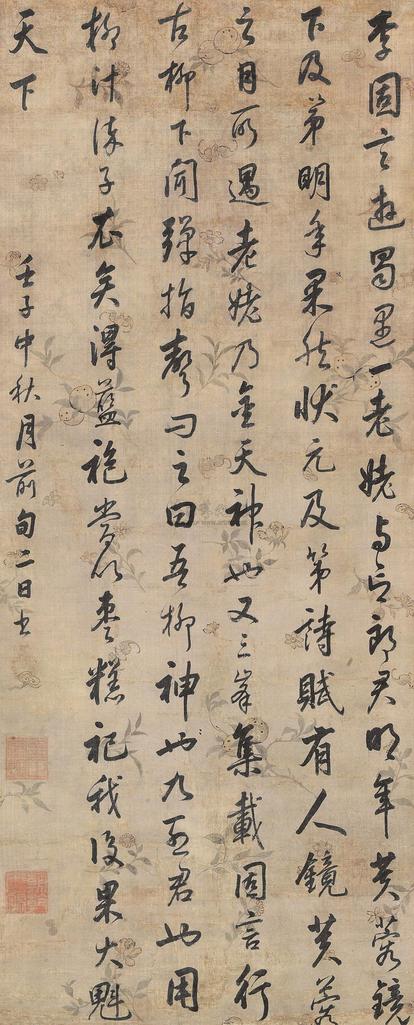 李固言遊蜀遇一老姥与言郎君明年芙蓉鏡
下及第明年果然狀元及第詩賦有人鏡芙蓉
之目所遇老姥乃金天神也又三峯集載固言行
古柳下聞彈指聲問之曰吾柳神也九烈君也用
柳汁染子衣矣得藍袍當以棗糕祀我後果大魁
天下
壬子中秋月前旬二日書